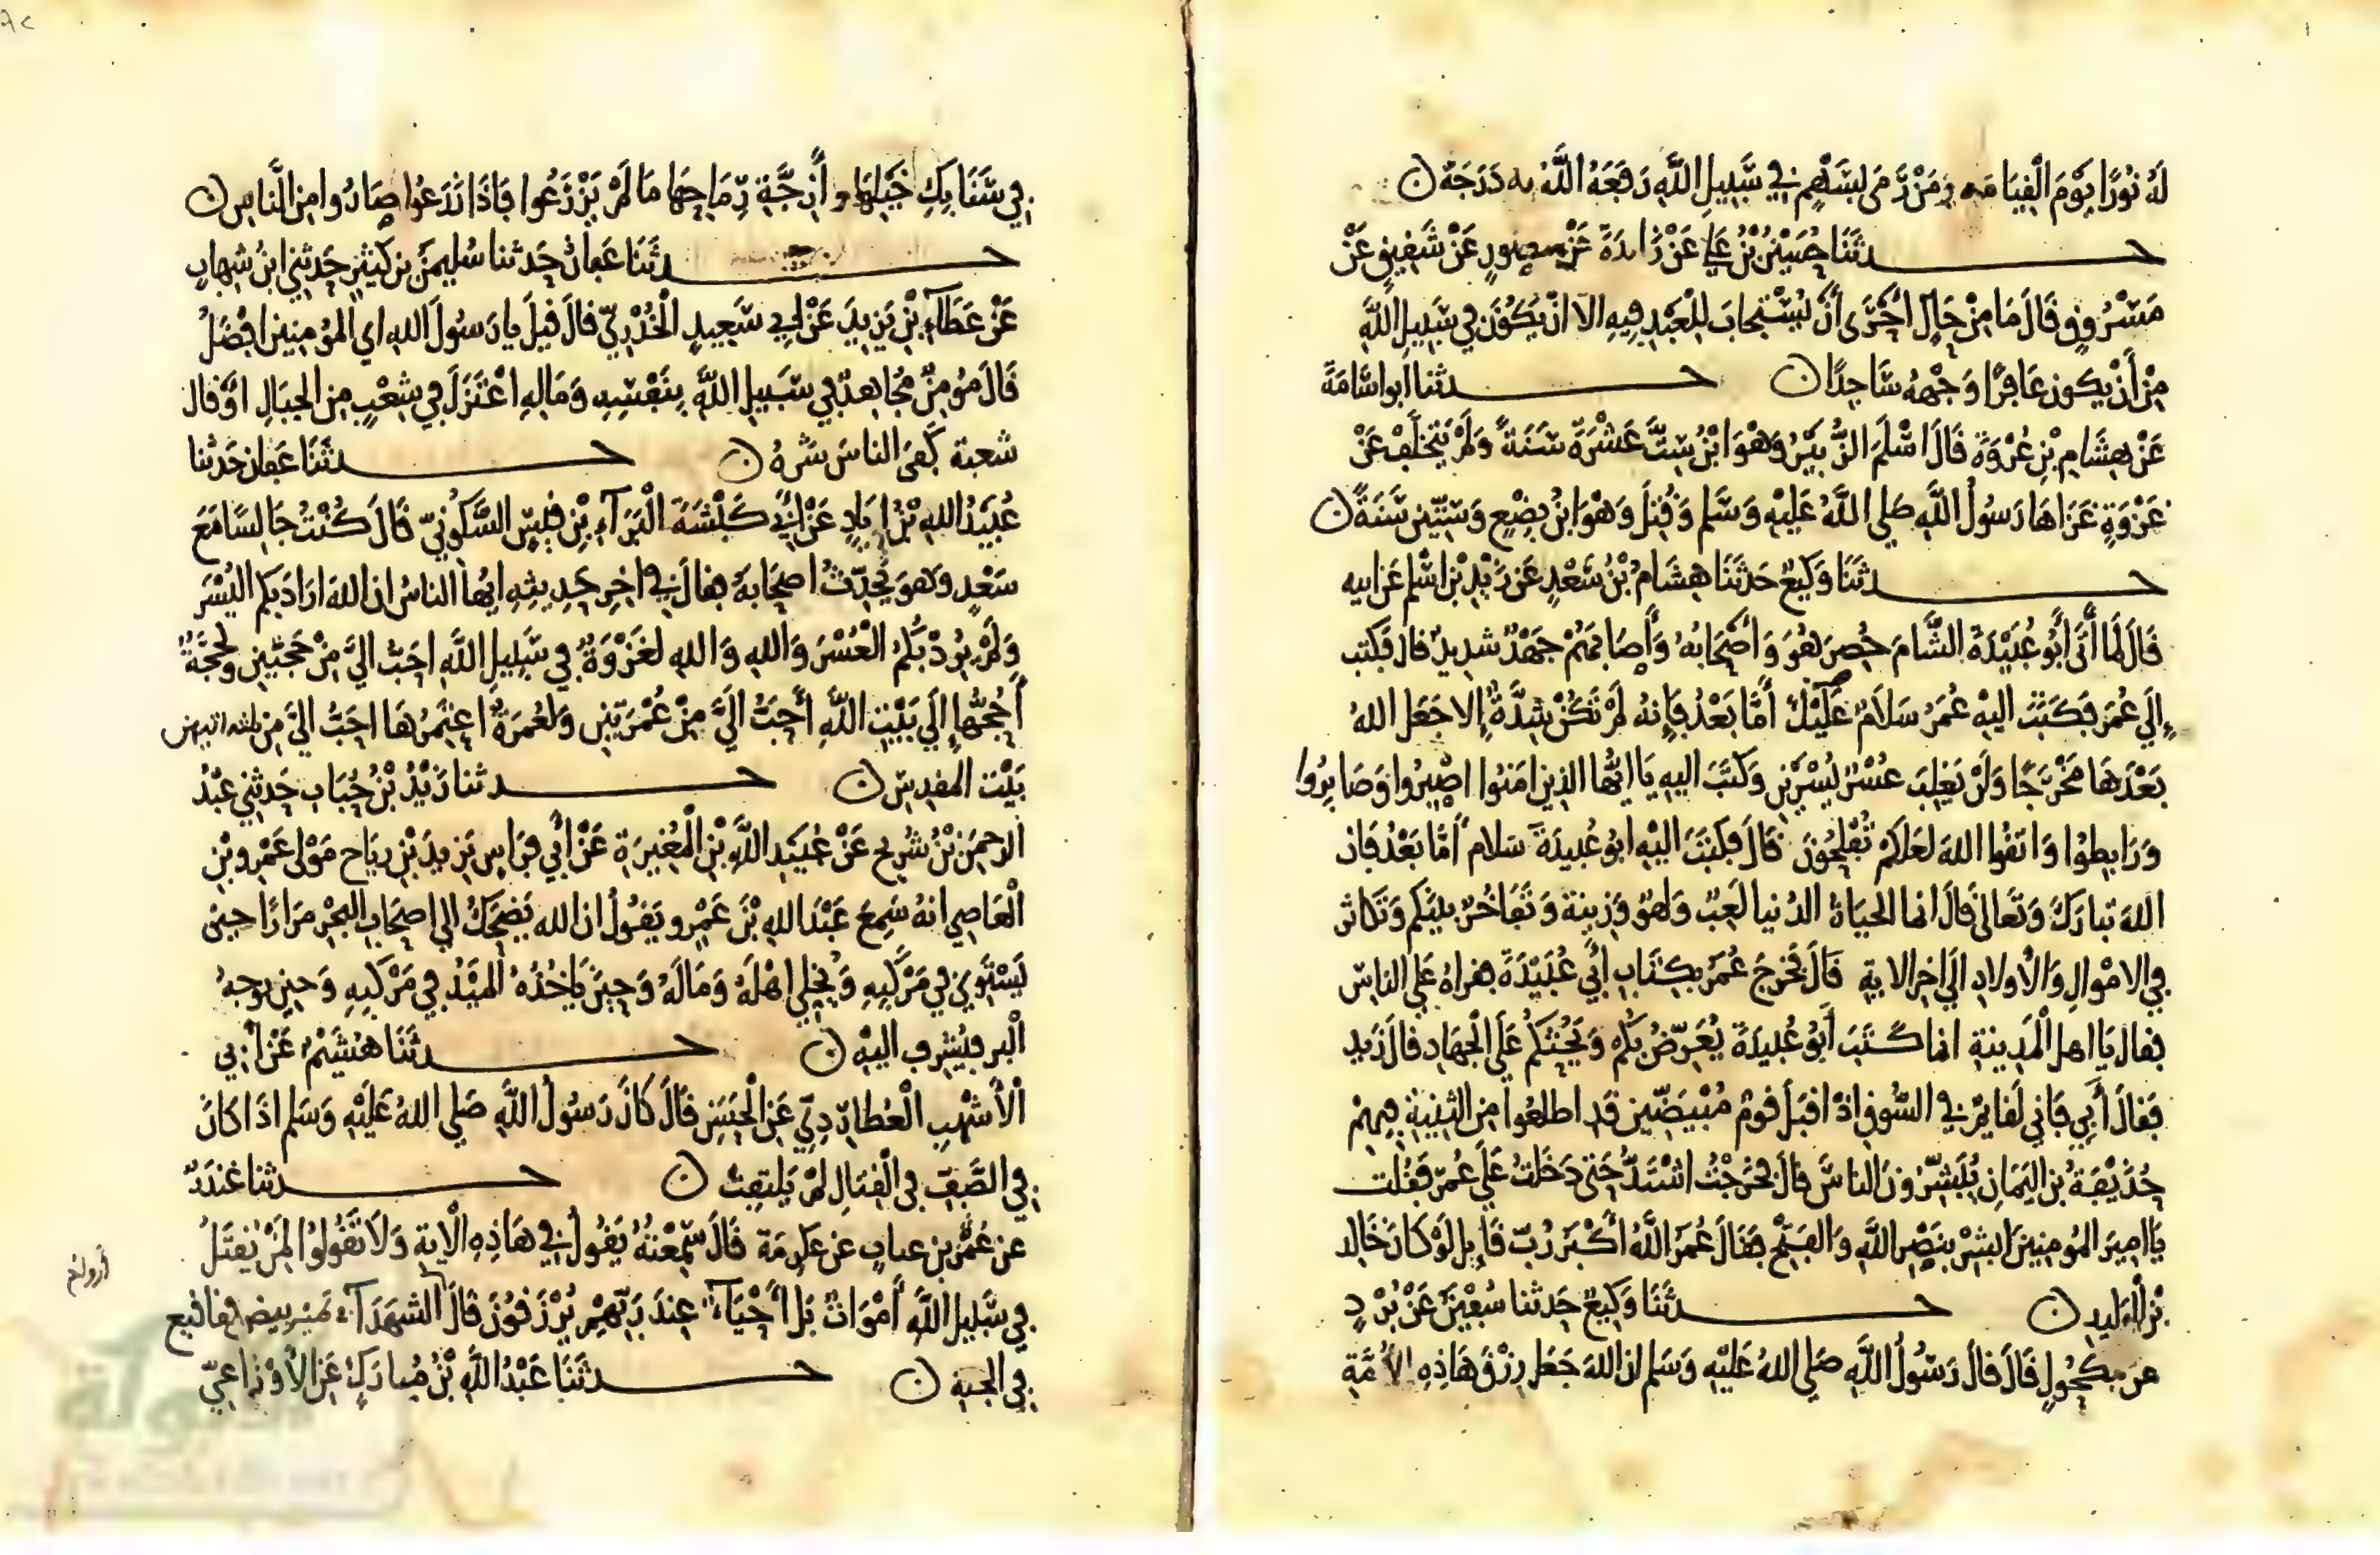 له نورا يوم القيامة ومن رمى بسهم في سبيل الله رفعه الله به درجة
حدثنا حسين بن علي عن زائدة عن منصور عن شقيق عن
مسروق قال ما من حال أحرى أن يستجاب للعبد فيه الا ان يكون في سبيل الله
من أن يكون عافرا وجهه ساجدا حدثنا ابو اسامة
عن هشام بن عروة قال اسلم الزبير وهو ابن ست عشرة سنة ولم يتخلف عن
غزوة غزاها رسول الله صلى الله عليه وسلم وقتل وهو ابن بضع وستين سنة
حدثنا وكيع حدثنا هشام بن سعد عن زيد بن اسلم عن ابيه
قال لما أتى أبو عبيدة الشام حصر هو وأصحابه وأصابهم جهد شديد قال فكتب
إلى عمر فكتب اليه عمر سلام عليك أما بعد فإنه لم تكن شدة إلا جعل الله
بعدها مخرجا ولن يغلب عسر يسرين وكتب اليه يا ايها الذين امنوا اصبروا وصابروا
ورابطوا واتقوا الله لعلكم تفلحون قال فكتب اليه ابو عبيدة سلام أما بعد فان
الله تبارك وتعالى قال انما الحياة الدنيا لعب ولهو وزينة وتفاخر بينكم وتكاثر
في الاموال والأولاد إلى اخر الاية قال فخرج عمر بكتاب أبي عبيدة فقراه على الناس
فقال يا اهل المدينة انما كتب أبو عبيدة يعرض بكم ويحثكم على الجهاد قال زيد
فقال أبي فاني لقائم في السوق اذ اقبل قوم مبيضين قد اطلعوا من الثنية فيهم
حذيفة بن اليمان يبشرون الناس قال فخرجت اشتد حتى دخلت على عمر فقلت
يا امير المومنين ابشر بنصر الله والفتح فقال عمر الله أكبر رب قايل لو كان خالد
بن الوليد حدثنا وكيع حدثنا سفين عن برد
عن مكحول قال قال رسول الله صلى الله عليه وسلم ان الله جعل رزق هاذه الأمة
في سنابك خيلها وأزجة رماحها ما لم يزرعوا فاذا زرعوا صاروا من الناس
حدثنا عفان حدثنا سليمن بن كثير حدثني ابن شهاب
عن عطاء بن يزيد عن أبي سعيد الخدري قال قيل يا رسول الله اي المومنين افضل
قال مومن مجاهد في سبيل الله بنفسه وماله اعتزل في شعب من الجبال او قال
شعبة كفى الناس شره حدثنا عفان حدثنا
عبيد الله بن إياد عن أبي كبشة البراء بن قيس السكوني قال كنت جالسا مع
سعد وهو يحدث اصحابه فقال في اخر حديثه ايها الناس ان الله اراد بكم اليسر
ولم يرد بكم العسر والله والله لغزوة في سبيل الله احب الي من حجتين ولحجة
أحجها إلى بيت الله أحب الي من عمرتين ولعمرة اعتمرها احب الي من ثلثة اتيهن
بيت المقدس حدثنا زيد بن حباب حدثني عبد
الرحمن بن شريح عن عبيد الله بن المغيرة عن أبي فراس يزيد بن رباح مولى عمرو بن
العاصي انه سمع عبد الله بن عمرو يقول ان الله يضحك الى اصحاب البحر مرارا حين
يستوي في مركبه ويخلي اهله وماله وحين ياخذه الميد في مركبه وحين يوجه
البر فيشرف اليه حدثنا هشيم عن أبي
الأشهب العطاردي عن الحسن قال كان رسول الله صلى الله عليه وسلم اذا كان
في الصف في القتال لم يلتفت حدثنا غندر
عن عثمن بن عياث عن عكرمة قال سمعته يقول في هاذه الاية ولا تقولوا لمن يقتل
في سبيل الله أموات بل أحياء عند ربهم يرزقون قال الشهداء بيض فقاقيع
في الجنة حدثنا عبد الله بن مبارك عن الأوزاعي